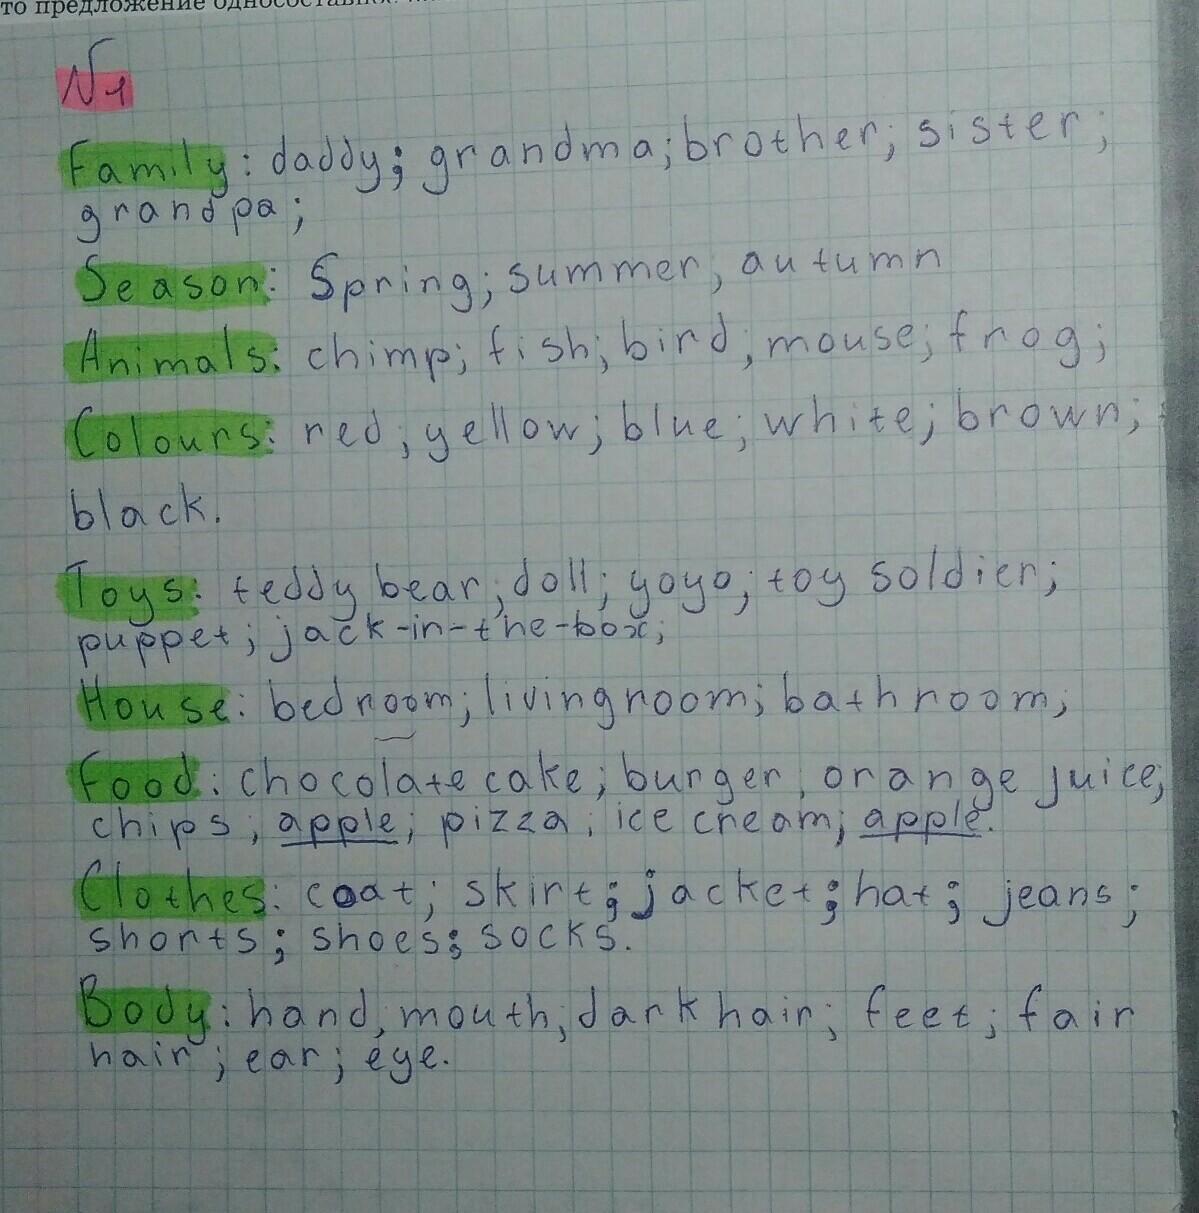 то предложение односостав
№1
Family: daddy; grandma; brother; sister;
grandpa;
Season: Spring; summer, autumn
Animals: chimp; fish; bird; mouse; frog;
Colours: red; yellow; blue; white; brown;
black.
Toys: teddy bear; doll; yoyo; toy soldier;
puppet; jack-in-the-box;
House: bedroom; livingroom; bathroom;
Food: chocolate cake; burger, orange juice;
chips; apple; pizza; ice cream; apple.
Clothes: coat; skirt; jacket; hat; jeans;
shorts; shoes; socks.
Body: hand, mouth, dark hair; feet; fair
hair; ear; eye.